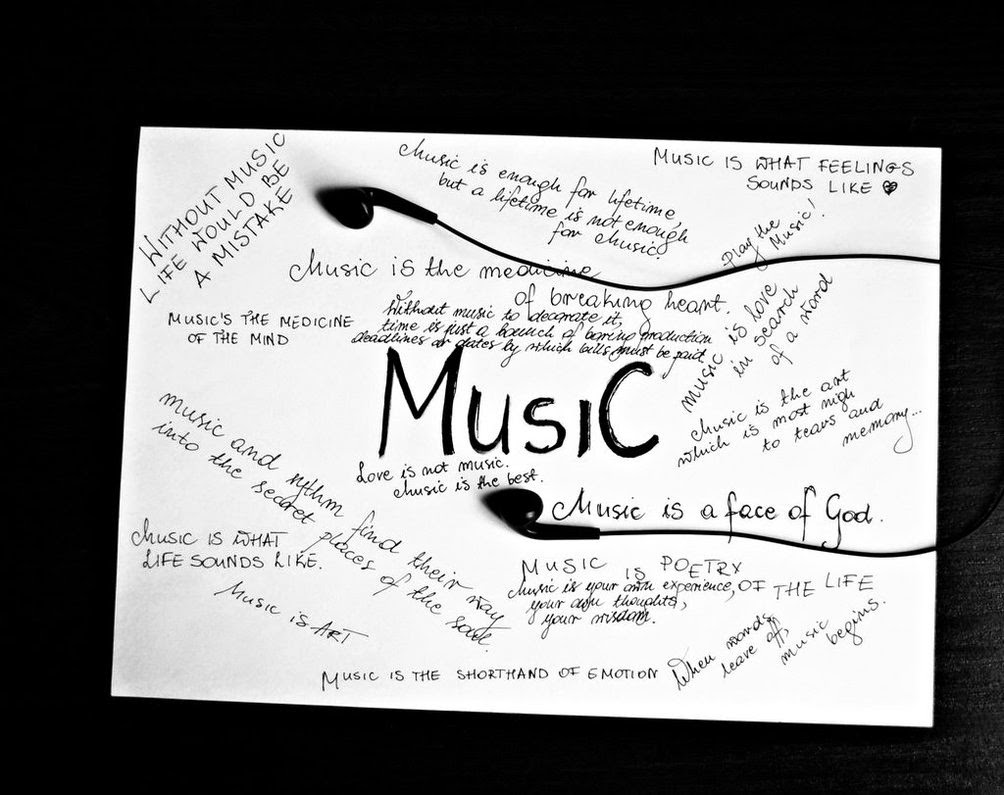 WITHOUT MUSIC
LIFE WOULD BE
A MISTAKE
Music is enough for lifetime,
but a lifetime is not enough
for Music.
MUSIC IS WHAT FEELINGS
SOUNDS LIKE
Play the
Music!
Music is the medicine
of breaking heart.
MUSIC'S THE MEDICINE
OF THE MIND
Without music to decorate it,
time is just a bounch of boring production
deadlines or dates by which bills must be paid.
music is love
in search
of a word
MUSIC
Music is the art
which is most nigh
to tears and
memory...
music and rythm find their way
into the secret places of the soul.
Love is not music.
Music is the best.
Music is a face of God.
MUSIC IS WHAT
LIFE SOUNDS LIKE.
MUSIC IS POETRY
OF THE LIFE
Music is your own experience,
your own thoughts,
your wisdom.
Music is ART
When words
leave off,
music
begins.
MUSIC IS THE SHORTHAND OF EMOTION